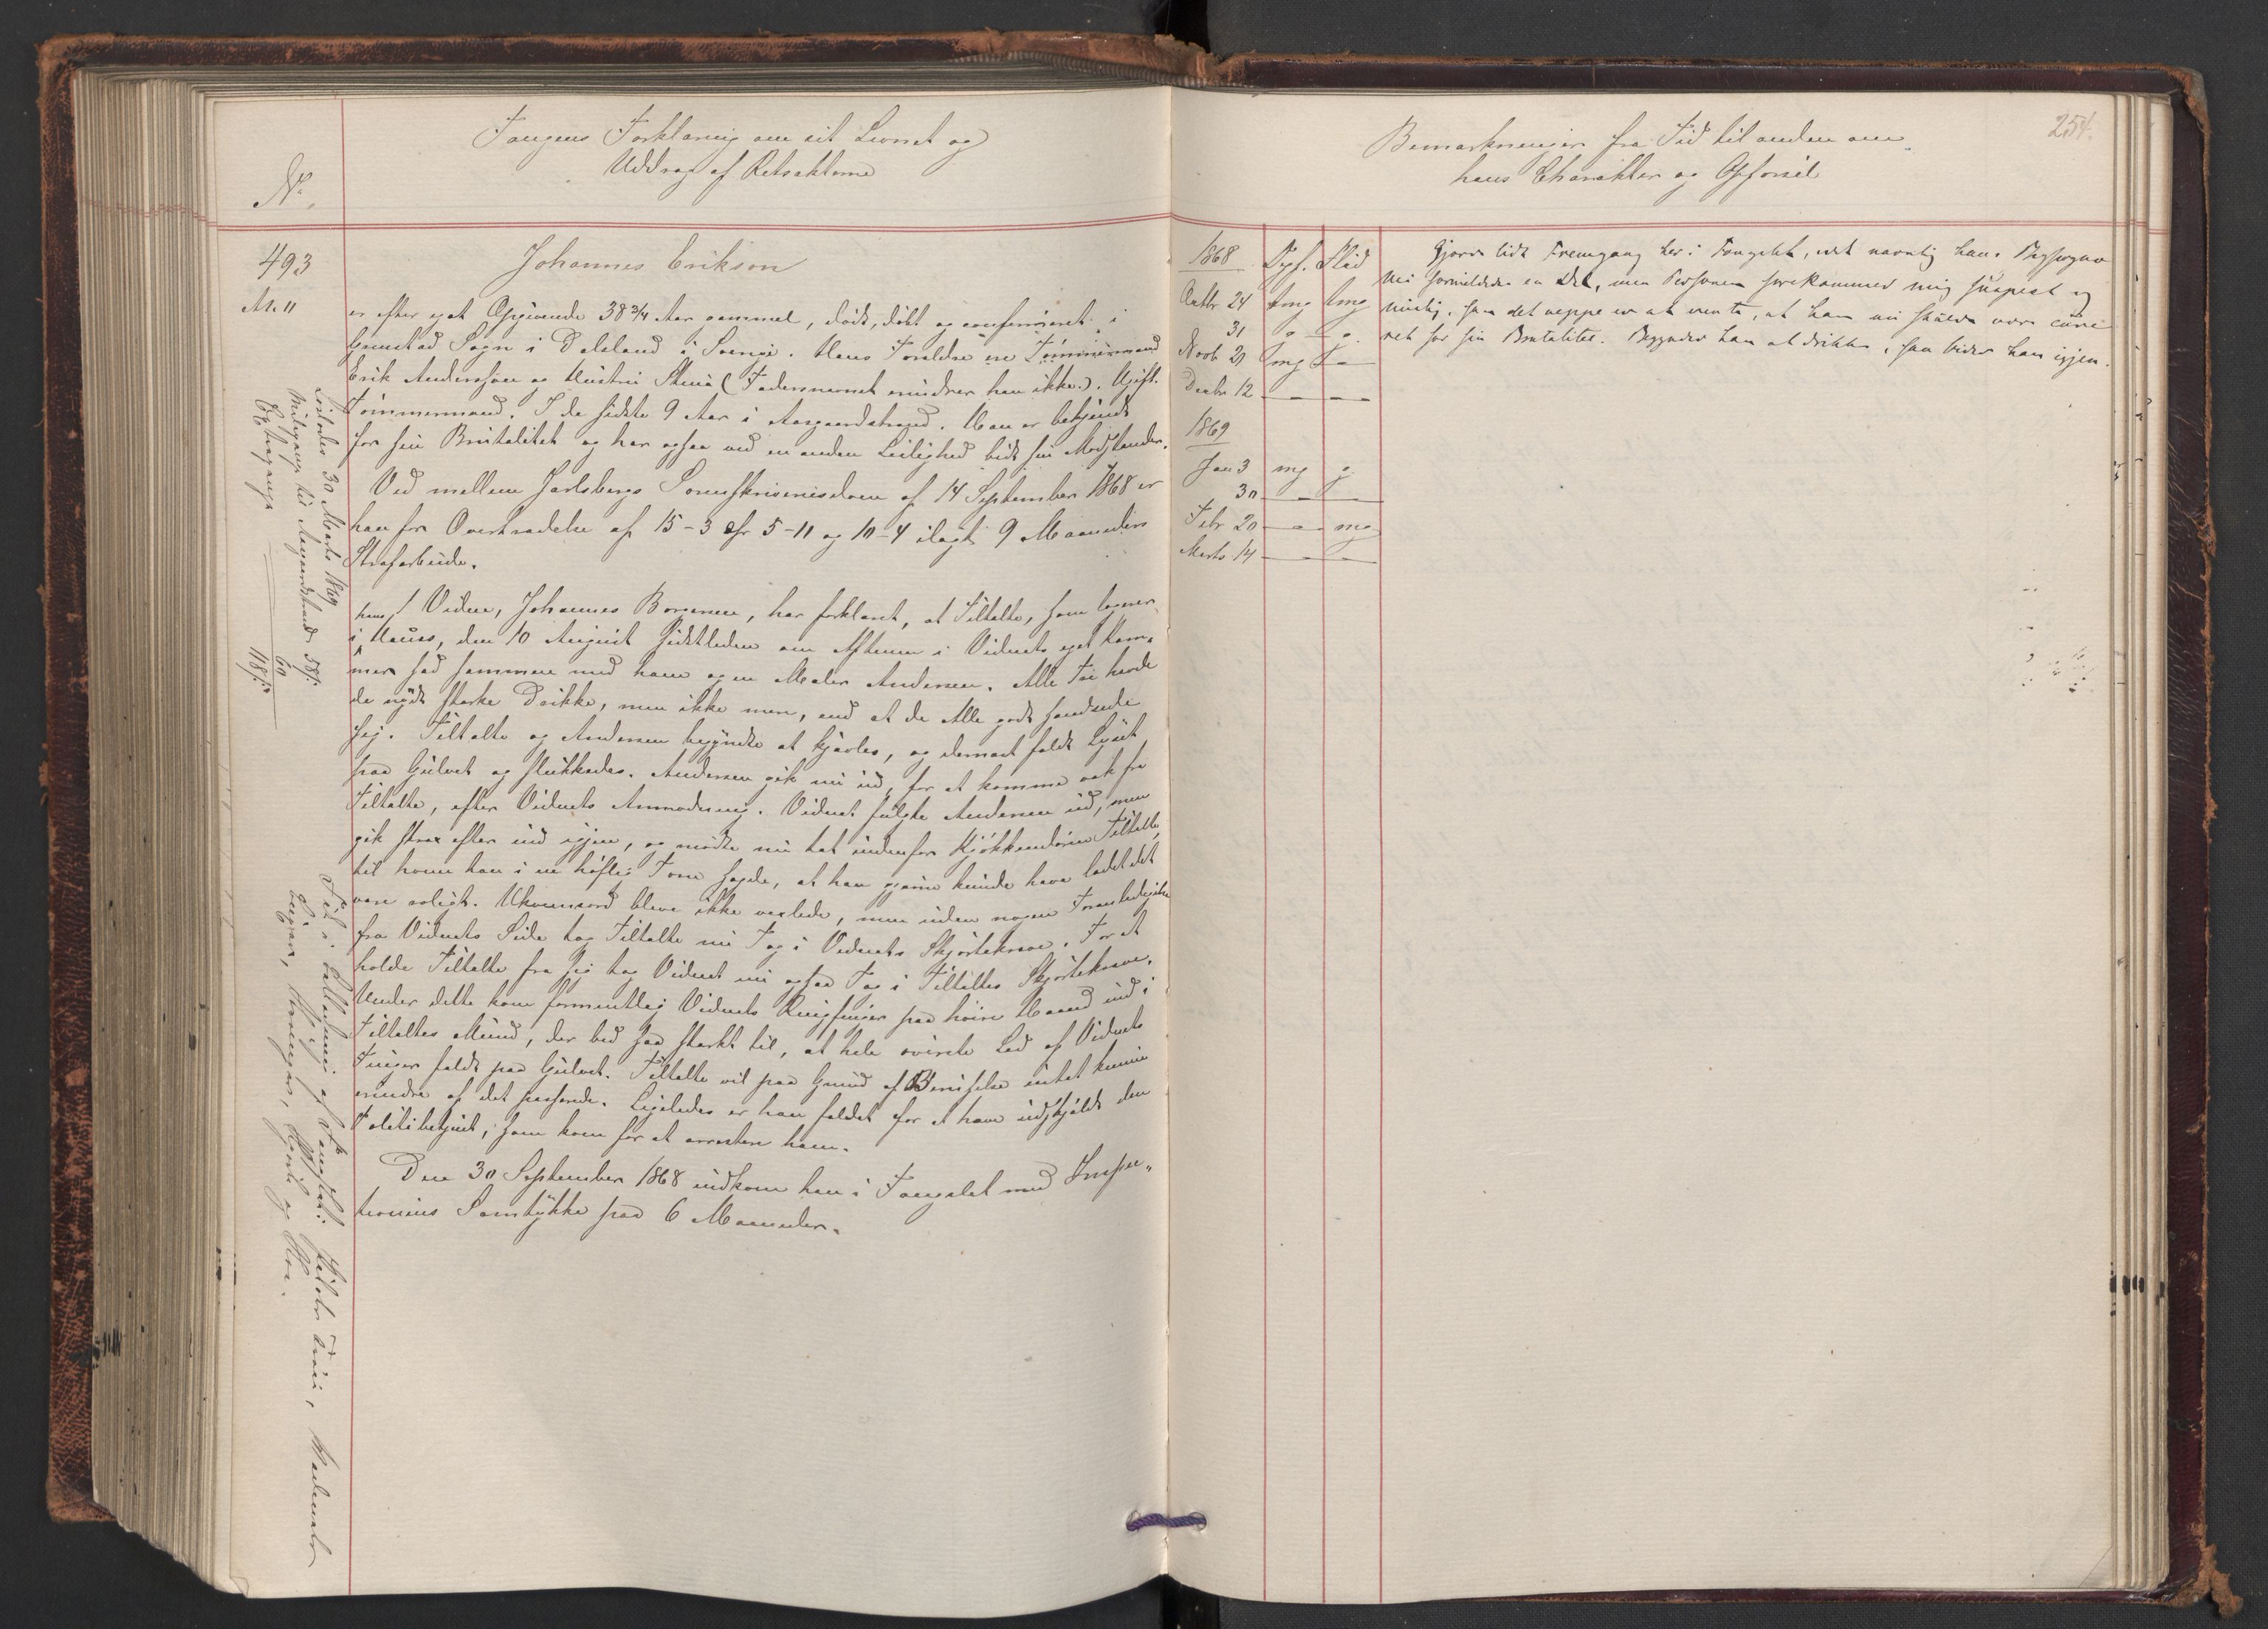 Fangens Forklaring om sit Levnet og
Uddrag af Retsakterne
No.
493
Johannes Erikson
er efter eget Opgivende 38 3/4 Aar gammel, født, døbt og confirmeret i
Sogn i Dalsland i Sverige. Hans Forældre ere Tømmermand
Erik Anderssøn og Hustru Stina (Fadersnavnet erindrer han ikke). Ugift.
Tømmermand. I de sidste 9 Aar i Aasgaardstrand. Han er bekjendt
for sin Brutalitet og har ogsaa ved en anden Leilighed bidt sin Modstander.
Ved mellem Jarlsbergs Sorenskriveries Dom af 14 September 1868 er
han for Overtrædelse af 15-3 cfr 5-11 og 10-4 ilagt 9 Maaneders
Strafarbeide.
Vidne, Johannes Borgersen, har forklaret, at Tiltalte, som logerer
i hans Huus, den 10 August sidstleden om Aftenen i Vidnets eget Kam-
mer sad sammen med ham og en Maler Andersen. Alle Tre havde
de nydt stærke Drikke, men ikke mere, end at de Alle godt sandsede
sig. Tiltalte og Andersen begyndte at kjævles, og dermed faldt Lyset
paa Gulvet og slukkedes. Andersen gik nu ud, for at komme væk fra
Tiltalte, efter Vidnets Anmodning. Vidnet fulgte Andersen ud, men
gik strax efter ind igjen, og mødte nu tæt indenfor Kjøkkendøren Tiltalte,
til hvem han i en høflig Tone sagde, at han gjerne kunde have ladet det
være roligt. Ukvemsord bleve ikke vexlede, men uden nogen Foranledigelse
fra Vidnets Side tog Tiltalte nu Tag i Vidnets Skjortekrave. For at
holde Tiltalte fra sig tog Vidnet nu ogsaa Tag i Tiltaltes Skjortekrave.
Under dette kom formentlig Vidnets Ringfinger paa høire Haand ind i
Tiltaltes Mund, der bed saa stærkt til, at hele øverste Led af Vidnets
Finger faldt paa Gulvet. Tiltalte vil paa Grund af Beruselse intet kunne
erindre af det passerede. Ligeledes er han fældet for at have udskjældt den
Politibetjent, som kom for at arrestere ham.
Den 30 September 1868 indkom han i Fængslet med Inspec-
tionens Samtykke paa 6 Maaneder.
Løslodes 30 Marts 1869
Medgang til Aasgaardstrand 58 s.
60
118 s.
Fik i
Bemærkninger fra Tid til anden om
hans Charakter og Opførsel
254.
1868 Opf. Flid
Octbr 24 tmg tmg
31 g g
Novb 21 mg
Decbr 12 — —
1869
Jan 3 mg g
30 — —
Febr 20 — mg
Marts 14 — —
Gjorde lidt Fremgang her i Fængslet, idet navnlig hans
nu formildedes en Del, men Personen forekommer mig suspect og
saa det neppe er at vente, at han nu skulde være cure-
ret for sin Brutalitet. Begynder han at drikke, saa bider han igjen.